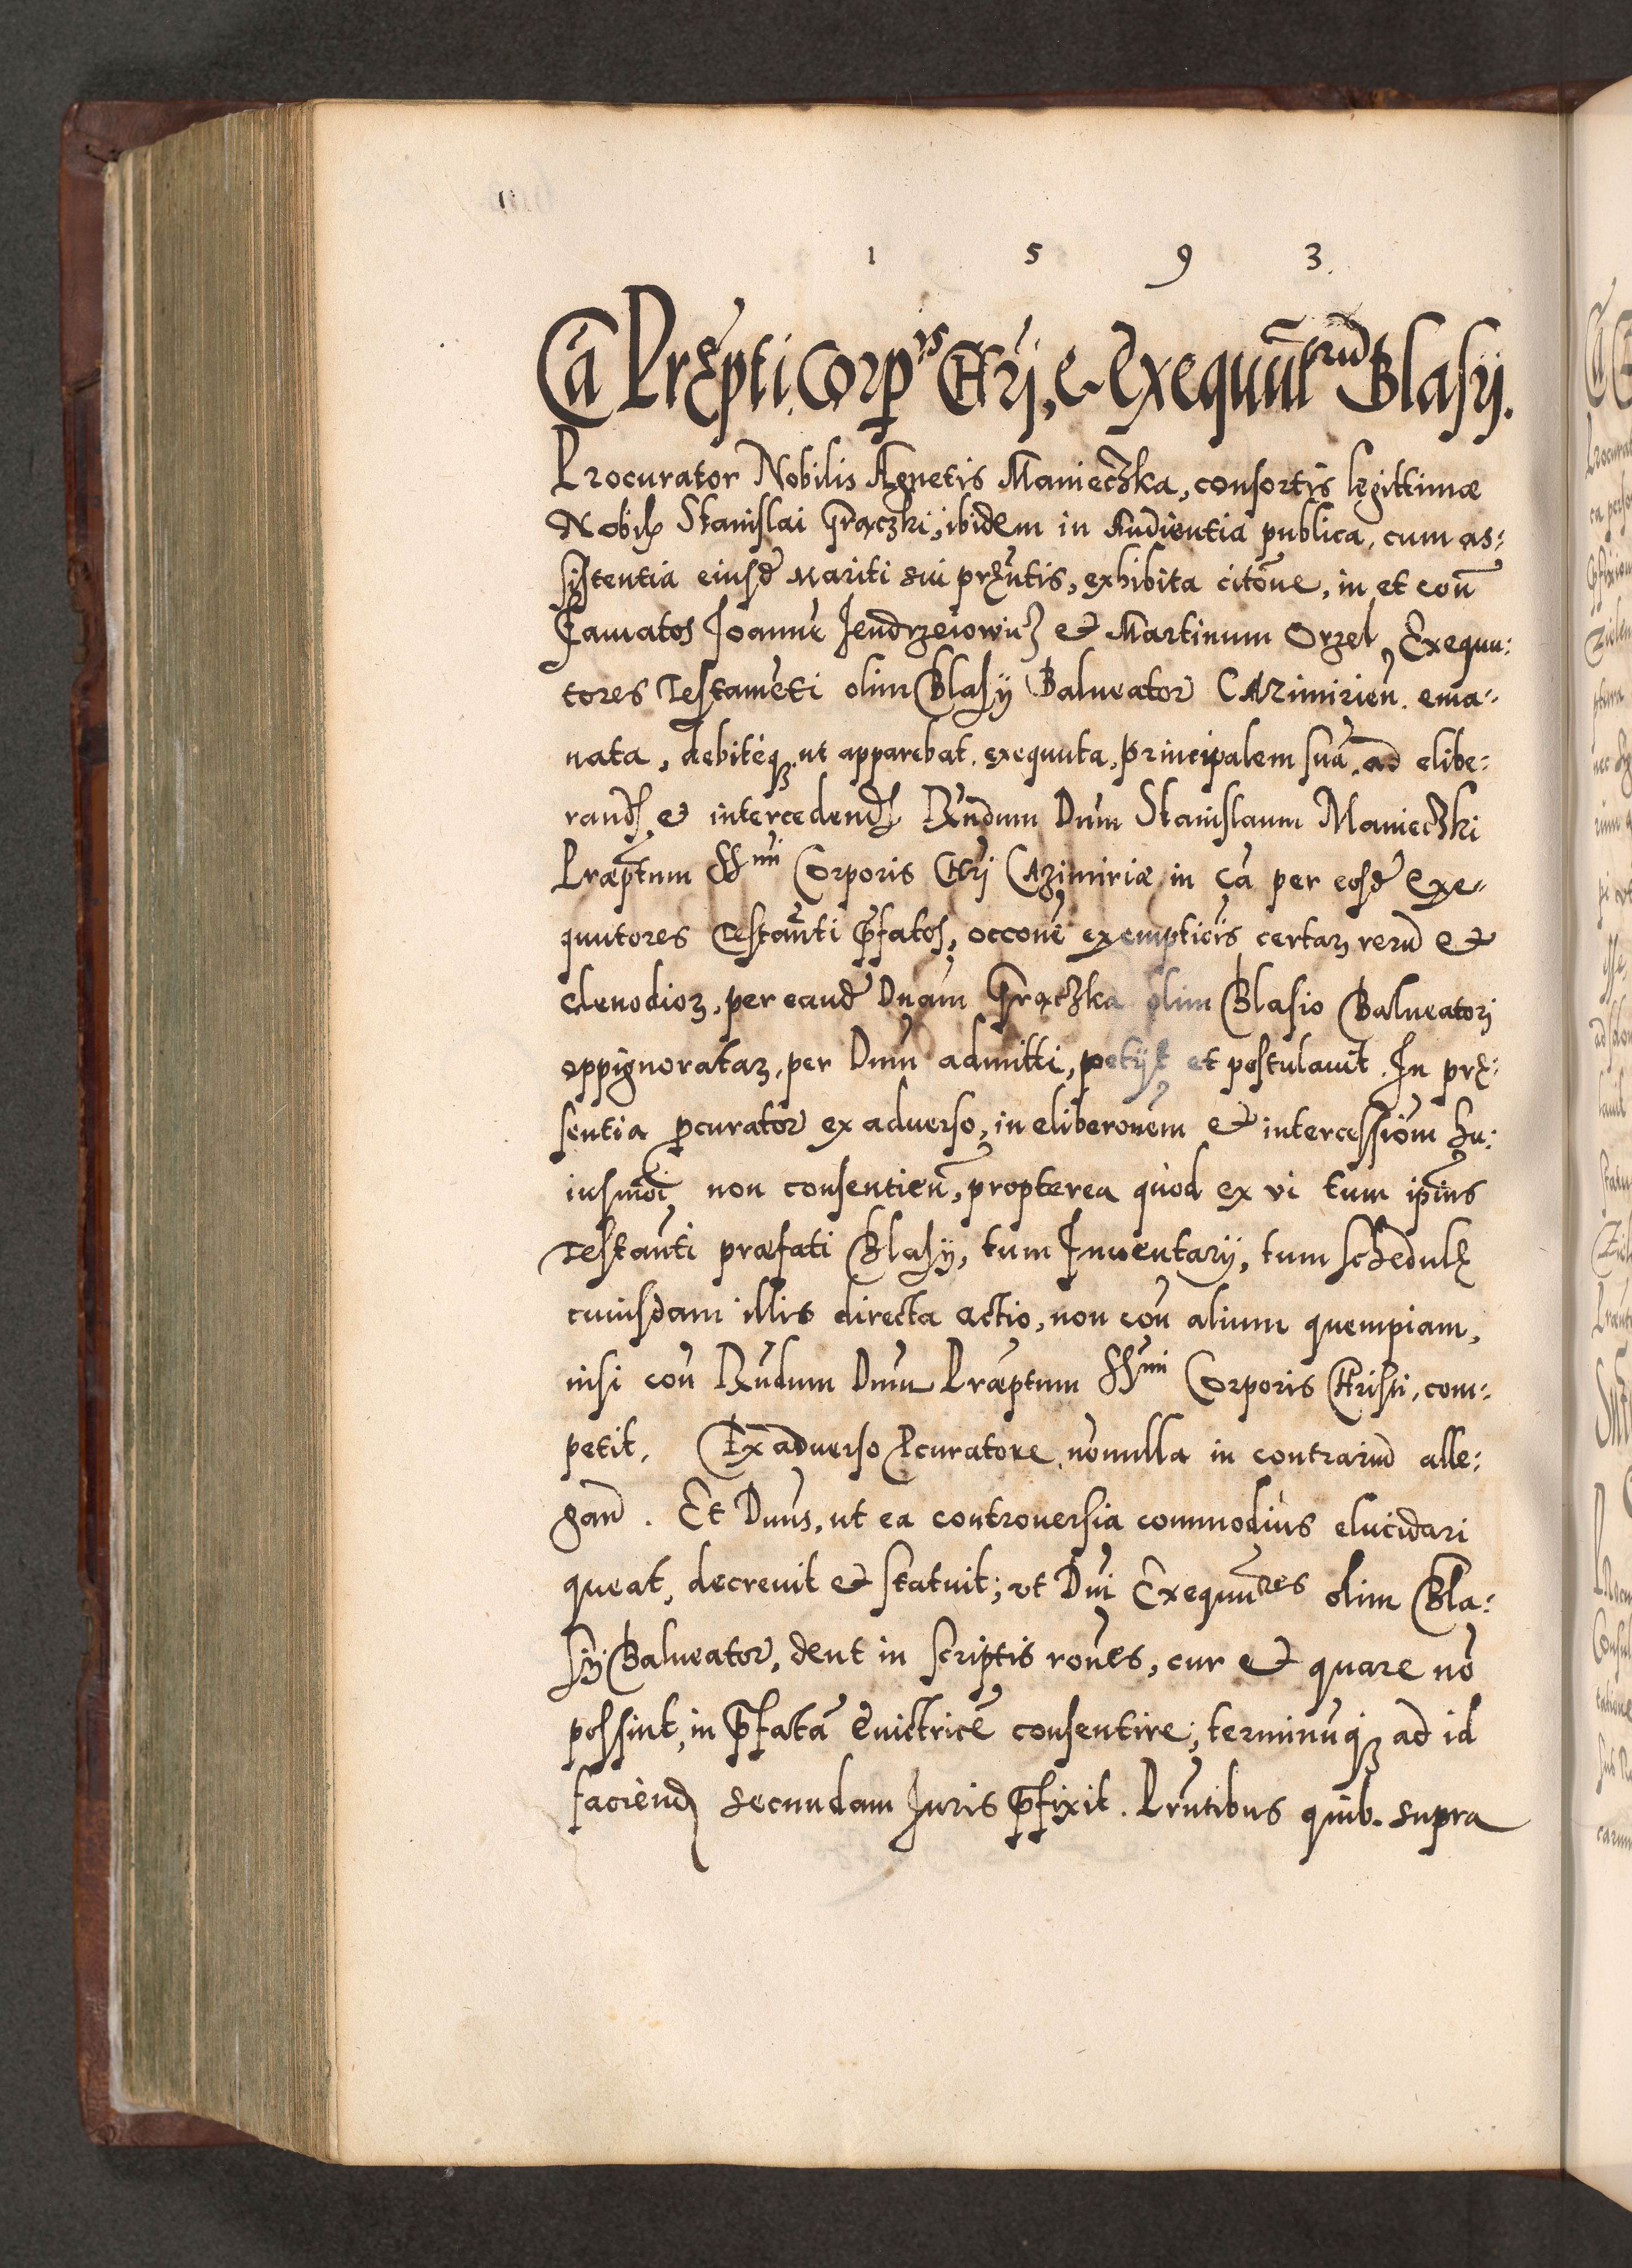 1 5 9 3.
Cā Præpti Corpis Chri, et Exequutrū Blasij.
Procurator Nobilis Agnetis Manieczka, consortis legittimæ
Nobilis Stanislai Grączki, ibidem in Audientia publica, cum as:
sistentia eiusd mariti sui pręntis, exhibita citōne, in et con
Famatos Joannē Jendrzeiowicz et Martinum Orzel, Exequu:
tores Testamēti olim Blasij Balneator Cazimirien. ema:
nata, debiteq3 ut apparebat exequuta, Principalem suā, ad elibe:
rand et intercedend Rndum Dnum Stanislaum Manieczki
Præptum SSmi Corporis Chri Cazimiriæ in cā per eosd exe:
quutores Testamti p̄fatos, occōne exempticis certaz rerū et
clenodioz, per eand Dnam Grączka olim Blasio Balneatori
oppignorataz, per Dnum admitti, petijt et postulauit. In præ:
sentia p̄curator ex aduerso, in eliberonem et intercessiōm hu:
iusmōi non consentien, propterea quòd ex vi tum ipsius
Testamti præfati Blasij, tum Inuentarij, tum schedulę
cuiusdam illis directa actio, non con alium quempiam,
nisi con Rndum Dnum Præptum SSmi Corporis Christi, com:
petit. Ex aduerso Pcuratore nōnulla in contrariū alle:
gan. Et Dnus, ut ea controuersia commodius elucidari
queat, decreuit et statuit; ut Dni Exequutres olim Bla:
sij Balneator, dent in scriptis rones, cur et quare nō
possint, in p̄fatā euictricē consentire; terminuq3 ad id
faciend secundam Juris p̄fixit. Prntibus quib. supra